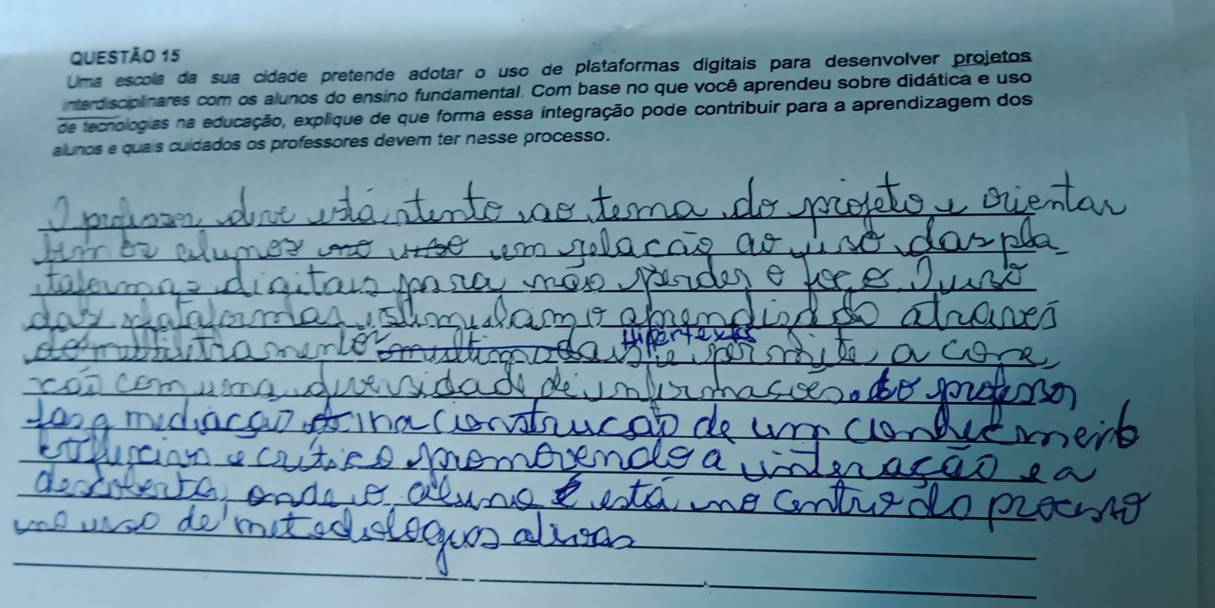 QUESTÃO 15
Uma escola da sua cidade pretende adotar o uso de plataformas digitais para desenvolver projetos
interdisciplinares com os alunos do ensino fundamental. Com base no que você aprendeu sobre didática e uso
de tecnologias na educação, explique de que forma essa integração pode contribuir para a aprendizagem dos
alunos e quais cuidados os professores devem ter nesse processo.
O professor deve está atento ao tema do projeto e orientar
alunos em relação ao uso das pla
taformas digitais para não perder o foco. O uso
das plataformas estimulam o aprendizado através
hipertextos
permite a cone
xão com uma diversidade de informações. professor
faz a mediação na construção de um conhecimento
reflexivo e crítico promovendo a interação e a
descoberta, onde o aluno está no centro do processo
no uso de metodologias ativas